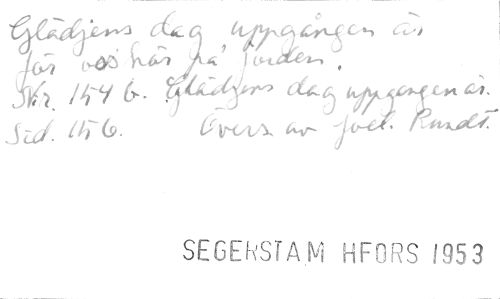 Glädjens dag uppgången är
för oss här på jorden.
Nr. 154 b. Glädjens dag uppgången är.
Sid. 156. Övers av Joel Rundt.
SEGERSTAM HFORS 1953